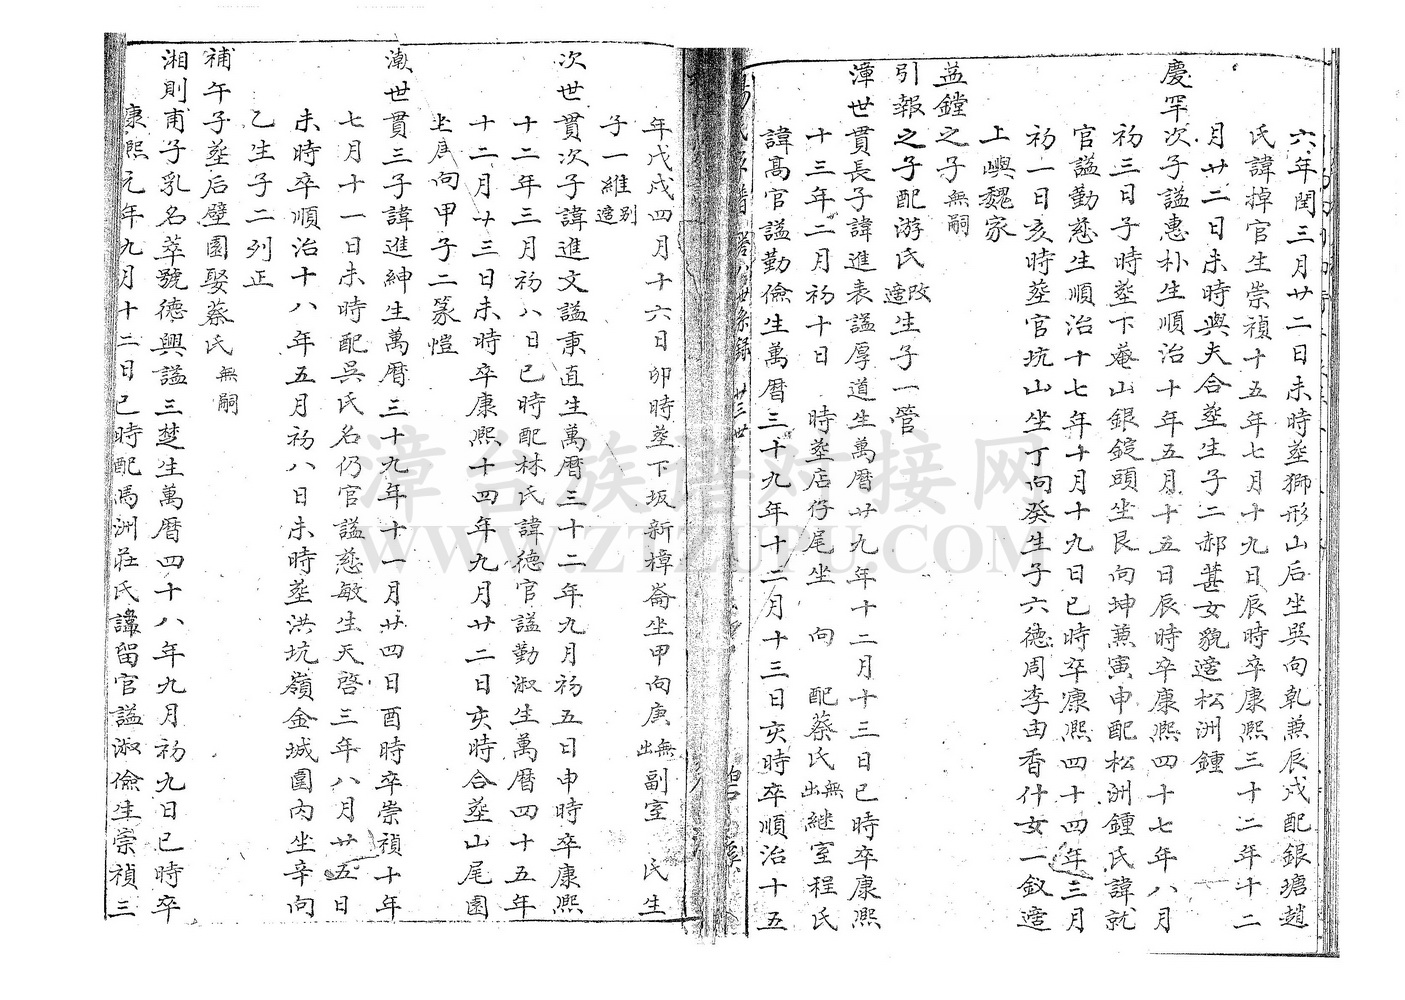 六年閏三月廿二日未時葬獅形山后坐巽向乾兼辰戌配銀塘趙
氏諱掉官生崇禎十五年七月十九日辰時卒康熙三十二年十二
月廿二日未時與夫合葬生子二郝葚女貌適松洲鍾
慶罕次子謚惠朴生順治十年五月十五日辰時卒康熙四十七年八月
初三日子時葬下菴山銀錠頭坐艮向坤兼寅申配松洲鍾氏諱就
官謚勤慈生順治十七年十月十九日巳時卒康熙四十四年三月
初一日亥時葬官坑山坐丁向癸生子六德周李由香什女一釵適
上嶼魏家
益鏜之子無嗣
引報之子配游氏改適生子一管
漳世貫長子諱進表謚厚道生萬曆廿九年十二月十三日巳時卒康熙
十三年二月初十日 時葬店仔尾坐 向 配蔡氏無出継室程氏
諱高官謚勤儉生萬曆三十九年十二月十三日亥時卒順治十五
楊氏族譜 卷八世系録 廿三世
年戊戌四月十六日卯時葬下坂新樟崙坐甲向庚無出副室 氏生
子一維別適
次世貫次子諱進文謚秉直生萬曆三十二年九月初五日申時卒康熙
十二年三月初八日巳時配林氏諱德官謚勤淑生萬曆四十五年
十二月廿三日未時卒康熙十四年九月廿二日亥時合葬山尾園
坐庚向甲子二篆愷
漱世貫三子諱進紳生萬曆三十九年十一月廿四日酉時卒崇禎十年
七月十一日未時配吳氏名仍官謚慈敏生天啓三年八月廿五日
未時卒順治十八年五月初八日未時葬洪坑嶺金城圍內坐辛向
乙生子二列正
補午子葬后壁園娶蔡氏無嗣
湘則甫子乳名萃號德興謚三楚生萬曆四十八年九月初九日巳時卒
康熙元年九月十二日巳時配馮洲莊氏諱留官謚淑儉生崇禎三
漳台族谱对接网
WWW.ZTZUPU.COM